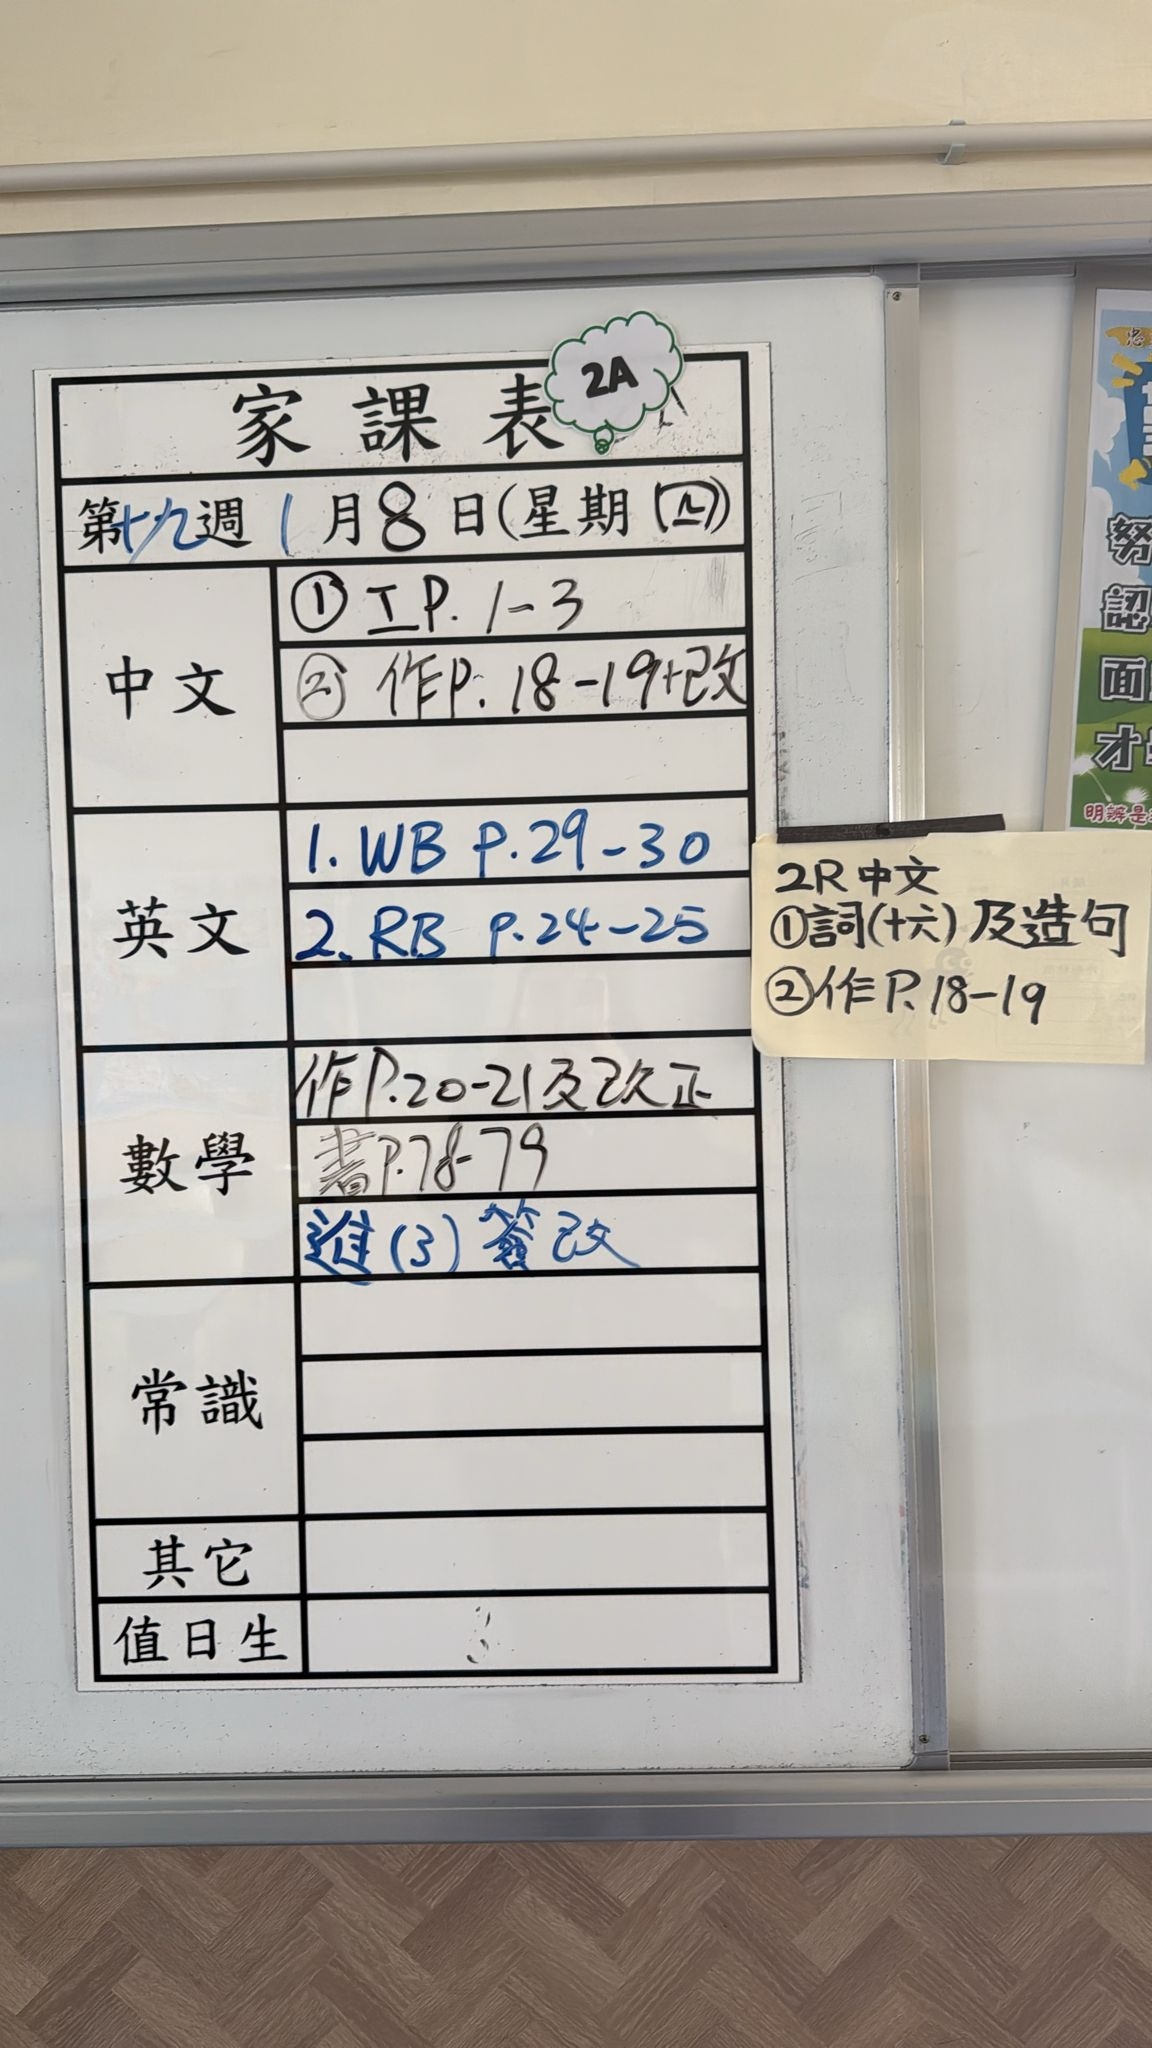 家課表
2A
第十九週 1月8日(星期四)
中文
① 工P. 1-3
② 作P. 18-19+改
英文
1. WB P.29-30
2. RB P.24-25
數學
作P.20-21及改正
書P.78-79
進(3) 簽改
常識
其它
值日生
2R 中文
①詞(十六)及造句
②作P.18-19
努
認
面
才
明辨是